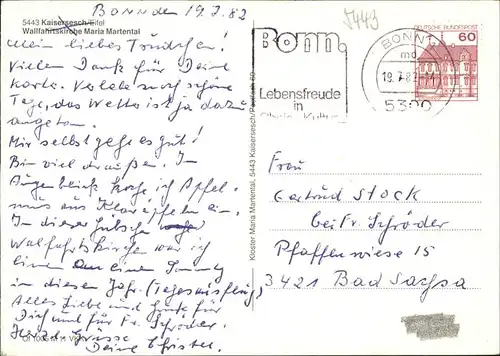 Bonn den 19.7.82
5443 Kaisersesch/Eifel
Wallfahrtskirche Maria Martental
Mein liebes Trudchen!
Vielen Dank für Deine
Karte. Verlebe noch schöne
Tage, das Wetter ist ja dazu
angetan.
Mir selbst geht es gut!
Bin viel draußen. Im
Augenblick koche ich Apfel-
mus aus Klaräpfeln ein.
In dieser hübschen
Wallfahrtskirche war ich
einen Sonntag
in diesem Jahr. (Tagesausflug)
Alles Liebe und Gute für
Dich und für Fr. Schröder.
Herzl. Grüsse
Deine Christel
Kloster Maria Martental, 5443 Kaisersesch/
5449
Bonn.
Lebensfreude
in
BONN 1
md
19.7.82
5300
DEUTSCHE BUNDESPOST
60
Frau
Gertrud Stock
bei Fr. Schröder
Pfaffenwiese 15
3421 Bad Sachsa